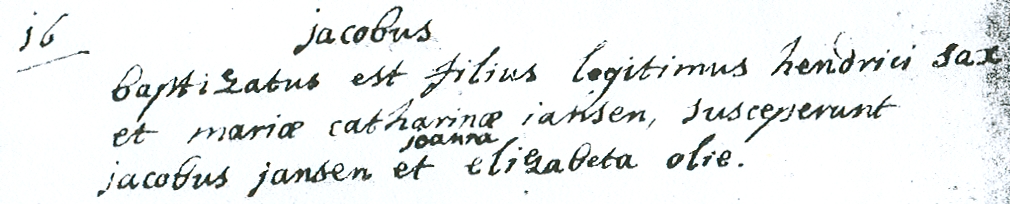 16 jacobus
baptizatus est filius legitimus hendrici sax
et mariæ catharinæ iansen, susceperunt
joanna
jacobus jansen et elizabeta olie.